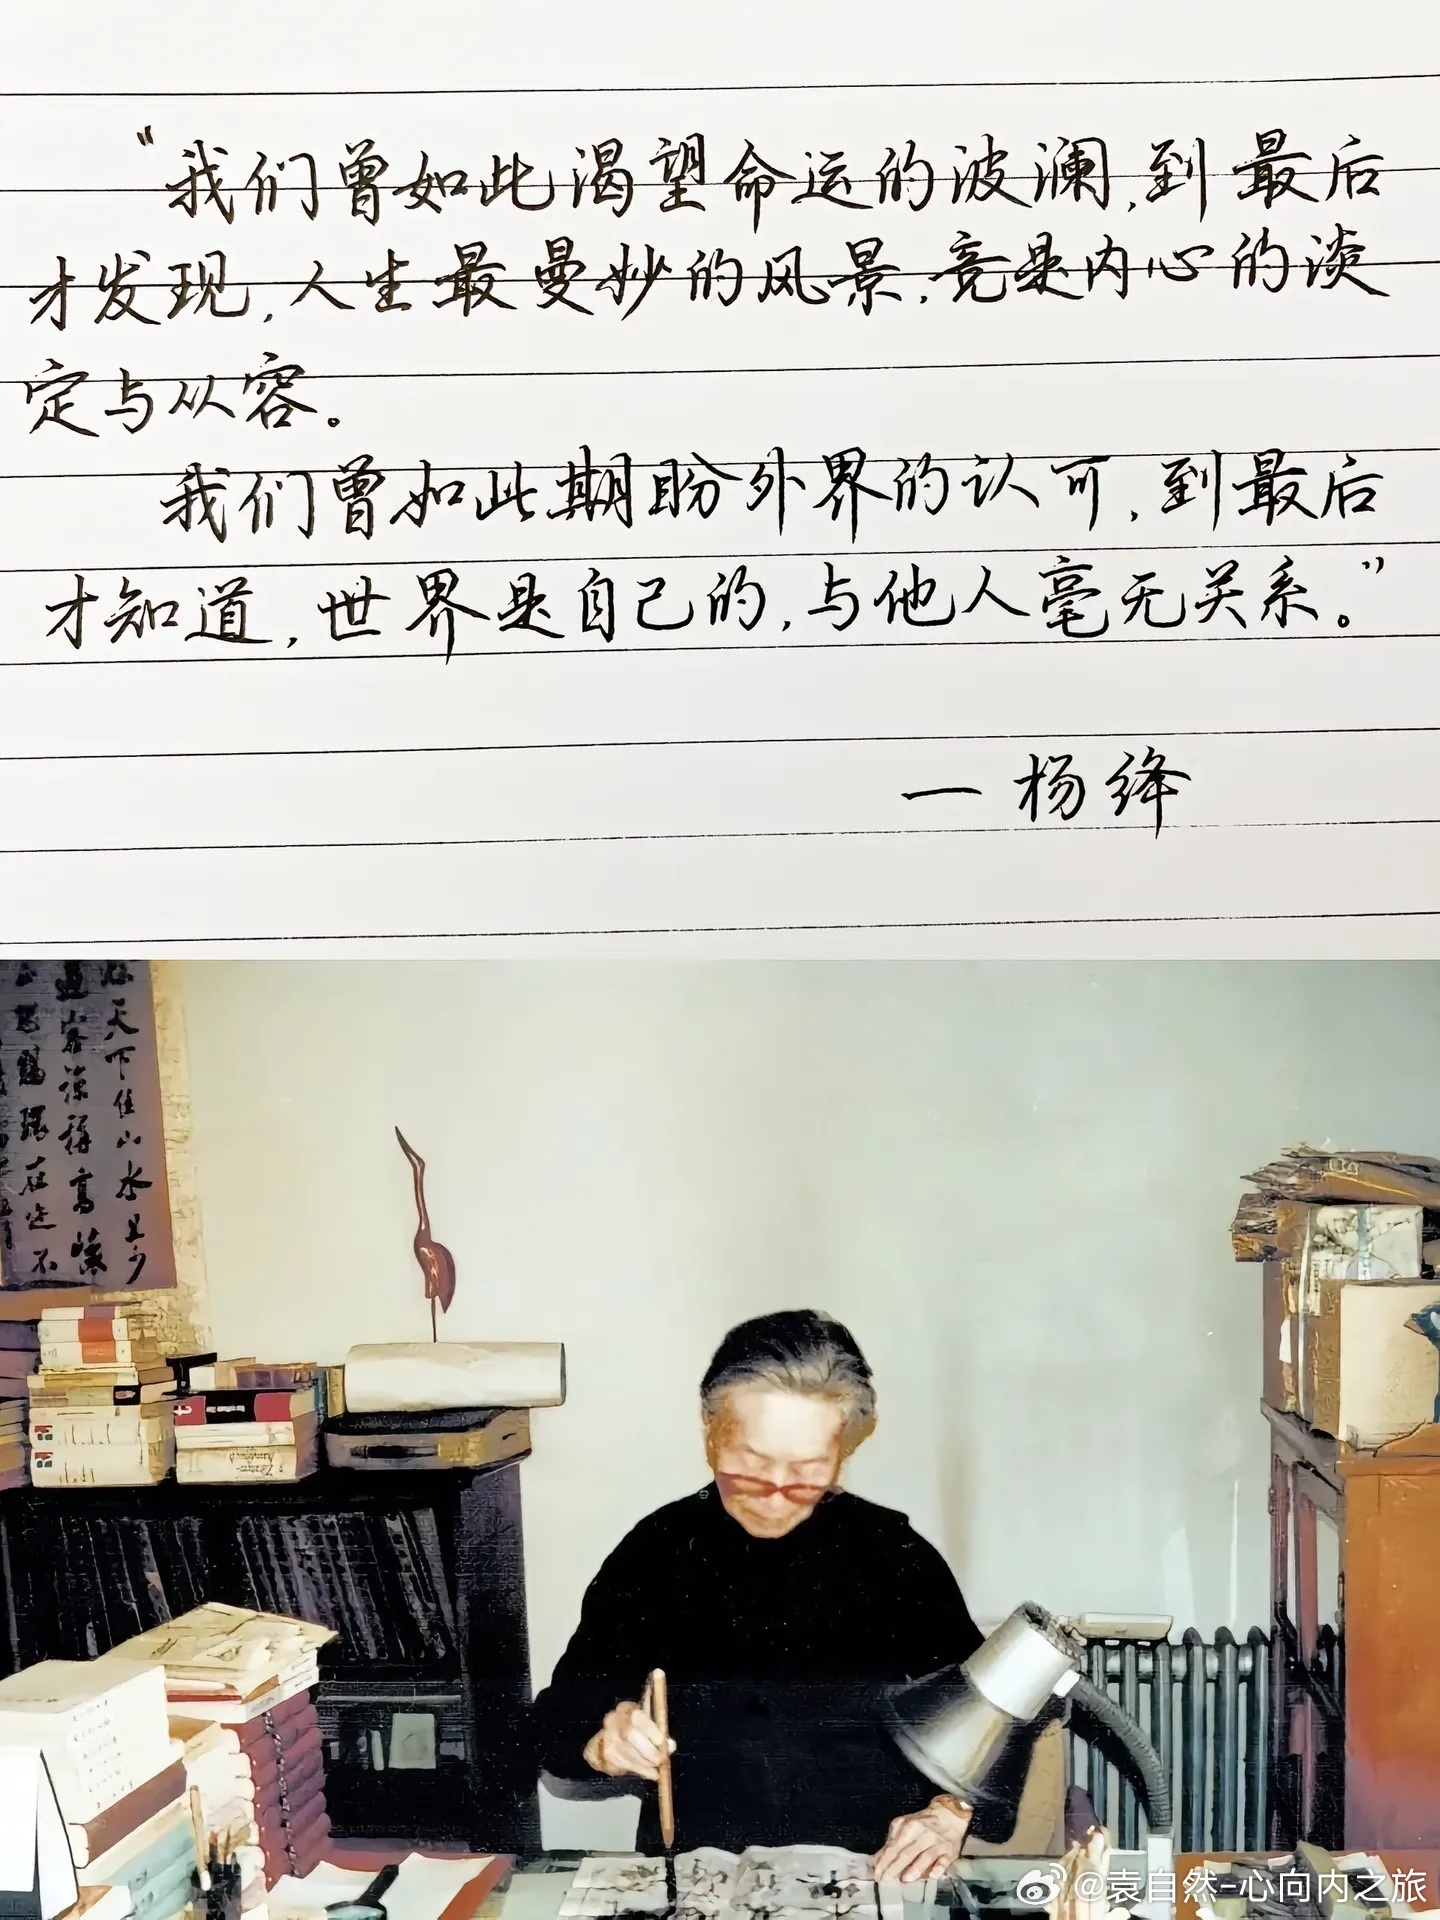 “我们曾如此渴望命运的波澜,到最后
才发现,人生最曼妙的风景,竟是内心的淡
定与从容。
我们曾如此期盼外界的认可,到最后
才知道,世界是自己的,与他人毫无关系。”
— 杨绛
天下佳山水
@袁自然-心向内之旅